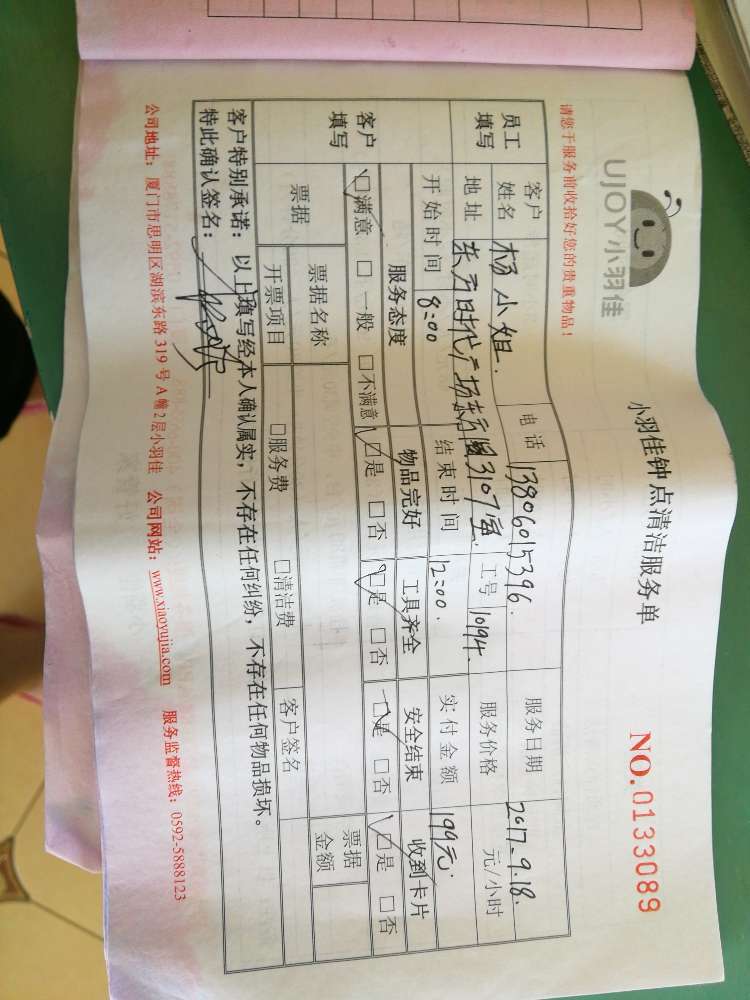 UJOY小羽佳
小羽佳钟点清洁服务单
NO.0133089
请您于服务前收拾好您的贵重物品！
员工填写
客户姓名 杨小姐. 电话 13806015396. 服务日期 2017.9.18.
地址 东方时代广场 3107室. 工号 10194. 服务价格 元/小时
开始时间 8:00 结束时间 12:00. 实付金额 199元.
客户填写
服务态度 物品完好 工具齐全 安全结束 收到卡片
☑满意 □一般 □不满意 ☑是 □否 ☑是 □否 ☑是 □否 ☑是 □否
票据 票据名称 票据金额
开票项目 □服务费 □清洁费 客户签名
客户特别承诺：以上填写经本人确认属实，不存在任何纠纷，不存在任何物品损坏。
特此确认签名：
公司地址：厦门市思明区湖滨东路319号A幢2层小羽佳 公司网站：www.xiaoyujia.com 服务监督热线：0592-5888123